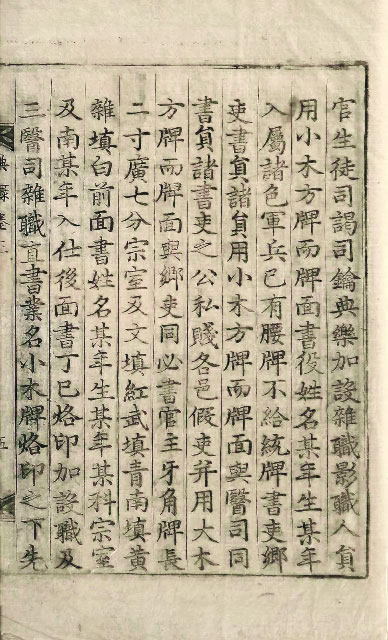 官生徒司謁司鑰典樂加設雜職影職人員
用小木方牌而牌面書役姓名某年生某年
入屬諸色軍兵已有腰牌不給統牌書吏鄉
吏書員諸員用小木方牌而牌面與醫司同
書員諸書吏之公私賤各邑假吏幷用大木
方牌而牌面與鄉吏同必書官主牙角牌長
二寸廣七分宗室及文填紅武填青南填黃
雜填白前面書姓名某年生某年某科宗室
及南某年入仕後面書丁巳烙印加設職及
三醫司雜職直書業名小木牌烙印之下先
典 卷二
五